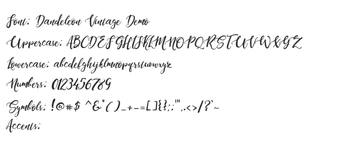 Font: Dandeleon Vintage Demo
Uppercase: ABCDEFGHIJKLMNOPQRSTUVWXYZ
Lowercase: abcdefghijklmnopqrstuvwxyz
Numbers: 0123456789
Symbols: !@#$ ^&*()_+-=[]{};:'",.<>/?`~
Accents: